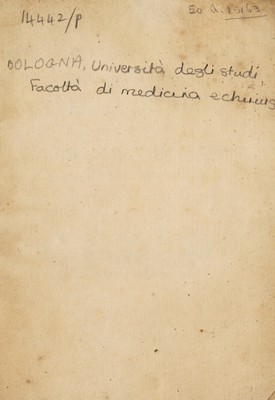 14442/p
BOLOGNA, Università degli studi,
Facoltà di medicina e chirurg